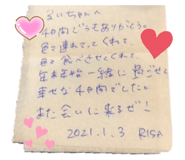 えいちゃんへ
4日間どうもありがとう。
色々連れてってくれて、
色々食べさせてくれて、
年末年始一緒に過ごせて
幸せな4日間でした。
また会いに来るぜ！
2021.1.3 RISA